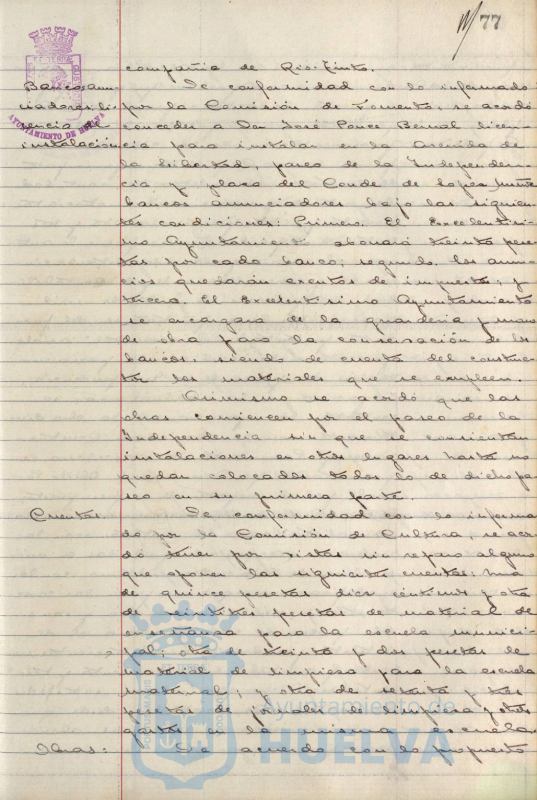 77
compañia de Rio-Tinto.
Bancos anun- De conformidad con lo informado
ciadores, li- por la Comisión de Fomento, se acordó
cencia de conceder a Don José Ponce Bernal licen-
instalación cia para instalar en la Avenida de
la Libertad, paseo de la Independen-
cia y plaza del Conde de López Muñoz
bancos anunciadores bajo las siguien-
tes condiciones: Primero. El Excelentísi-
mo Ayuntamiento abonará treinta pese-
tas por cada banco; segundo. los anun-
cios quedarán exentos de impuestos; y
tercera. El Excelentísimo Ayuntamiento
se encargara de la guardería y mano
de obra para la conservación de los
bancos, siendo de cuenta del construc-
tor los materiales que se empleen.
Asimismo se acordó que las
obras comiencen por el paseo de la
Independencia sin que se consientan
instalaciones en otros lugares hasta no
quedar colocados todos lo de dicho pa-
seo en su primera parte.
Cuentas. De conformidad con lo informa-
do por la Comisión de Cultura, se acor-
dó tener por vistas sin reparo alguno
que oponer las siguientes cuentas: una
de quince pesetas diez céntimos y otra
de veintitres pesetas de material de
enseñanza para la escuela munici-
pal; otra de treinta y dos pesetas de
material de limpieza para la escuela
maternal; y otra de setenta y tres
pesetas de jornales de limpieza y otros
gastos en la misma escuela.
Obras: De acuerdo con lo propuesto
AYUNTAMIENTO DE HUELVA
Ayuntamiento de
HUELVA